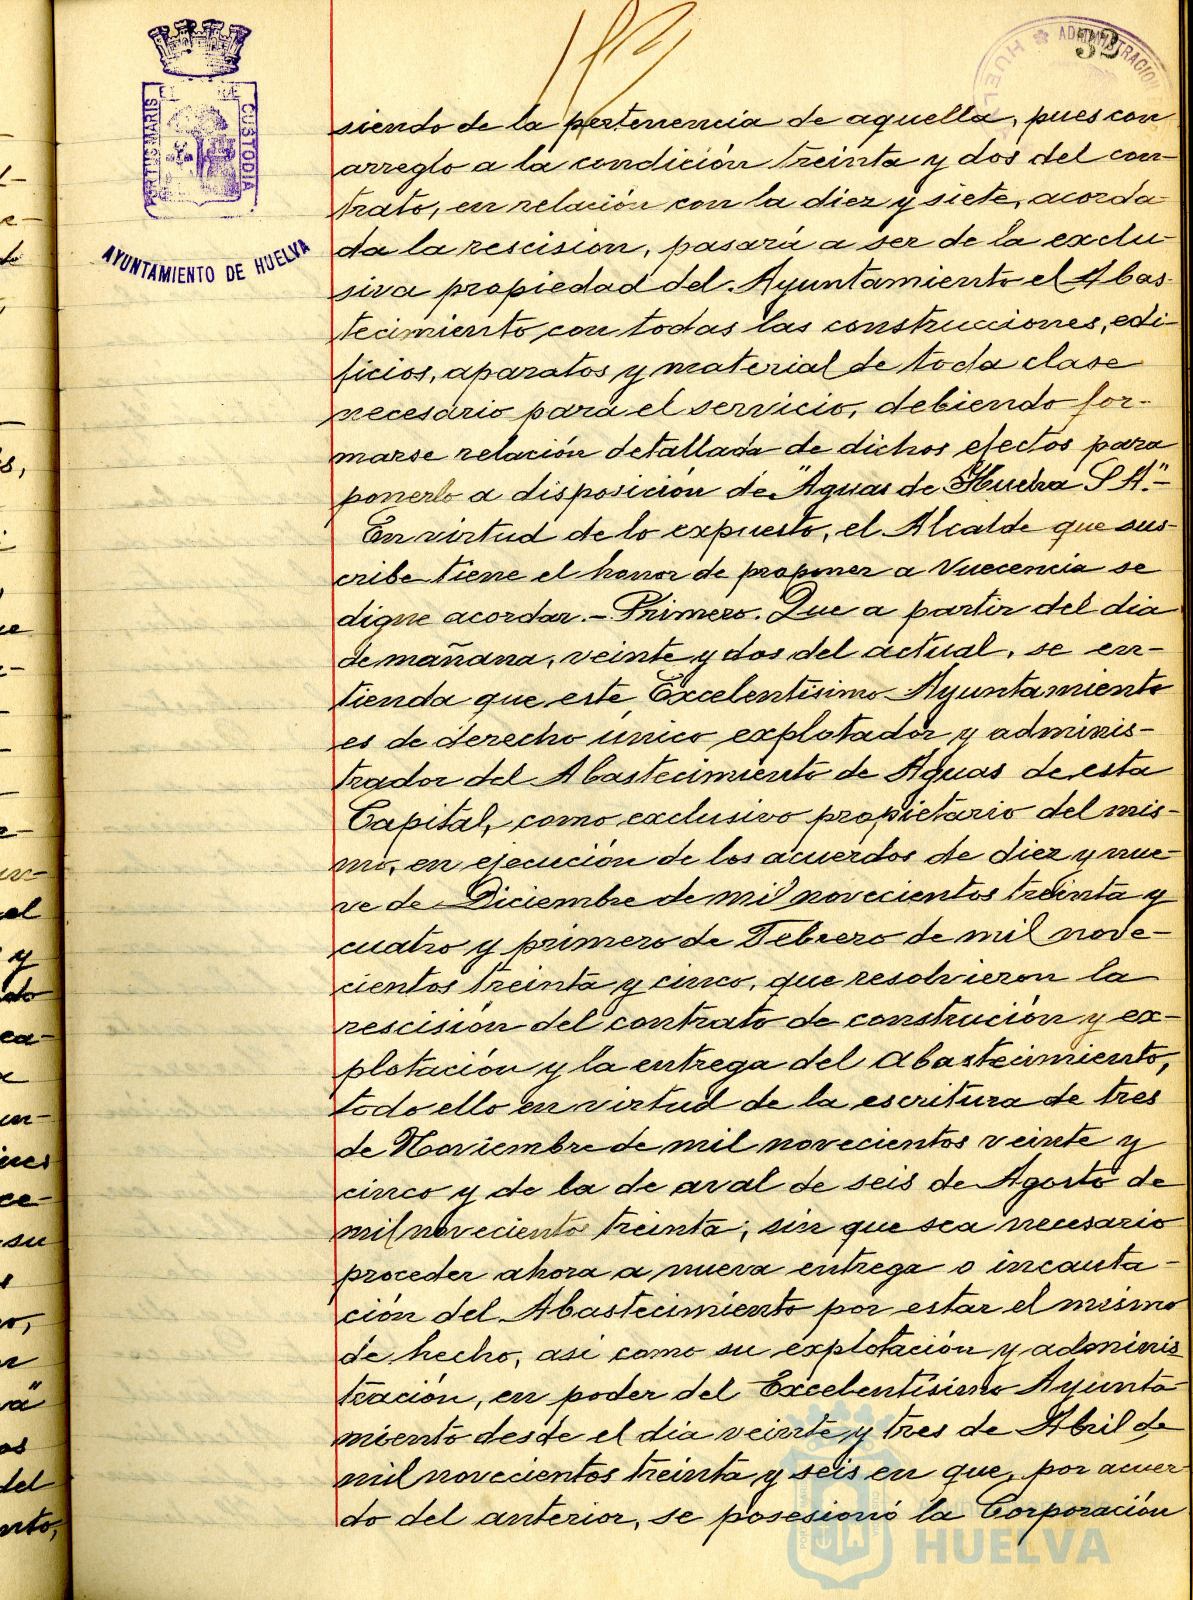 PORTUS MARIS
CUSTODIA
AYUNTAMIENTO DE HUELVA
ADMINISTRACION
HUEL
32
siendo de la pertenencia de aquella, pues con
arreglo a la condición treinta y dos del con-
trato, en relación con la diez y siete, acorda-
da la rescisión, pasará a ser de la exclu-
siva propiedad del Ayuntamiento el Abas-
tecimiento con todas las construcciones, edi-
ficios, aparatos y material de toda clase
necesario para el servicio, debiendo for-
marse relación detallada de dichos efectos para
ponerlo a disposición de "Aguas de Huelva S.A."-
En virtud de lo expuesto, el Alcalde que sus-
cribe tiene el honor de proponer a Vuecencia se
digne acordar.- Primero. Que a partir del dia
de mañana, veinte y dos del actual, se en-
tienda que este Excelentísimo Ayuntamiento
es de derecho único explotador y adminis-
trador del Abastecimiento de Aguas de esta
Capital, como exclusivo propietario del mis-
mo, en ejecución de los acuerdos de diez y nue-
ve de Diciembre de mil novecientos treinta y
cuatro y primero de Febrero de mil nove-
cientos treinta y cinco, que resolvieron la
rescisión del contrato de construción y ex-
plotación y la entrega del abastecimiento,
todo ello en virtud de la escritura de tres
de Noviembre de mil novecientos veinte y
cinco y de la de aval de seis de Agosto de
mil noveciento treinta, sin que sea necesario
proceder ahora a nueva entrega o incauta-
ción del Abastecimiento por estar el mismo
de hecho, asi como su explotación y adminis
tración, en poder del Excelentísimo Ayunta-
miento desde el dia veinte y tres de Abril de
mil novecientos treinta y seis en que, por acuer-
do del anterior, se posesionó la Corporación
HUELVA